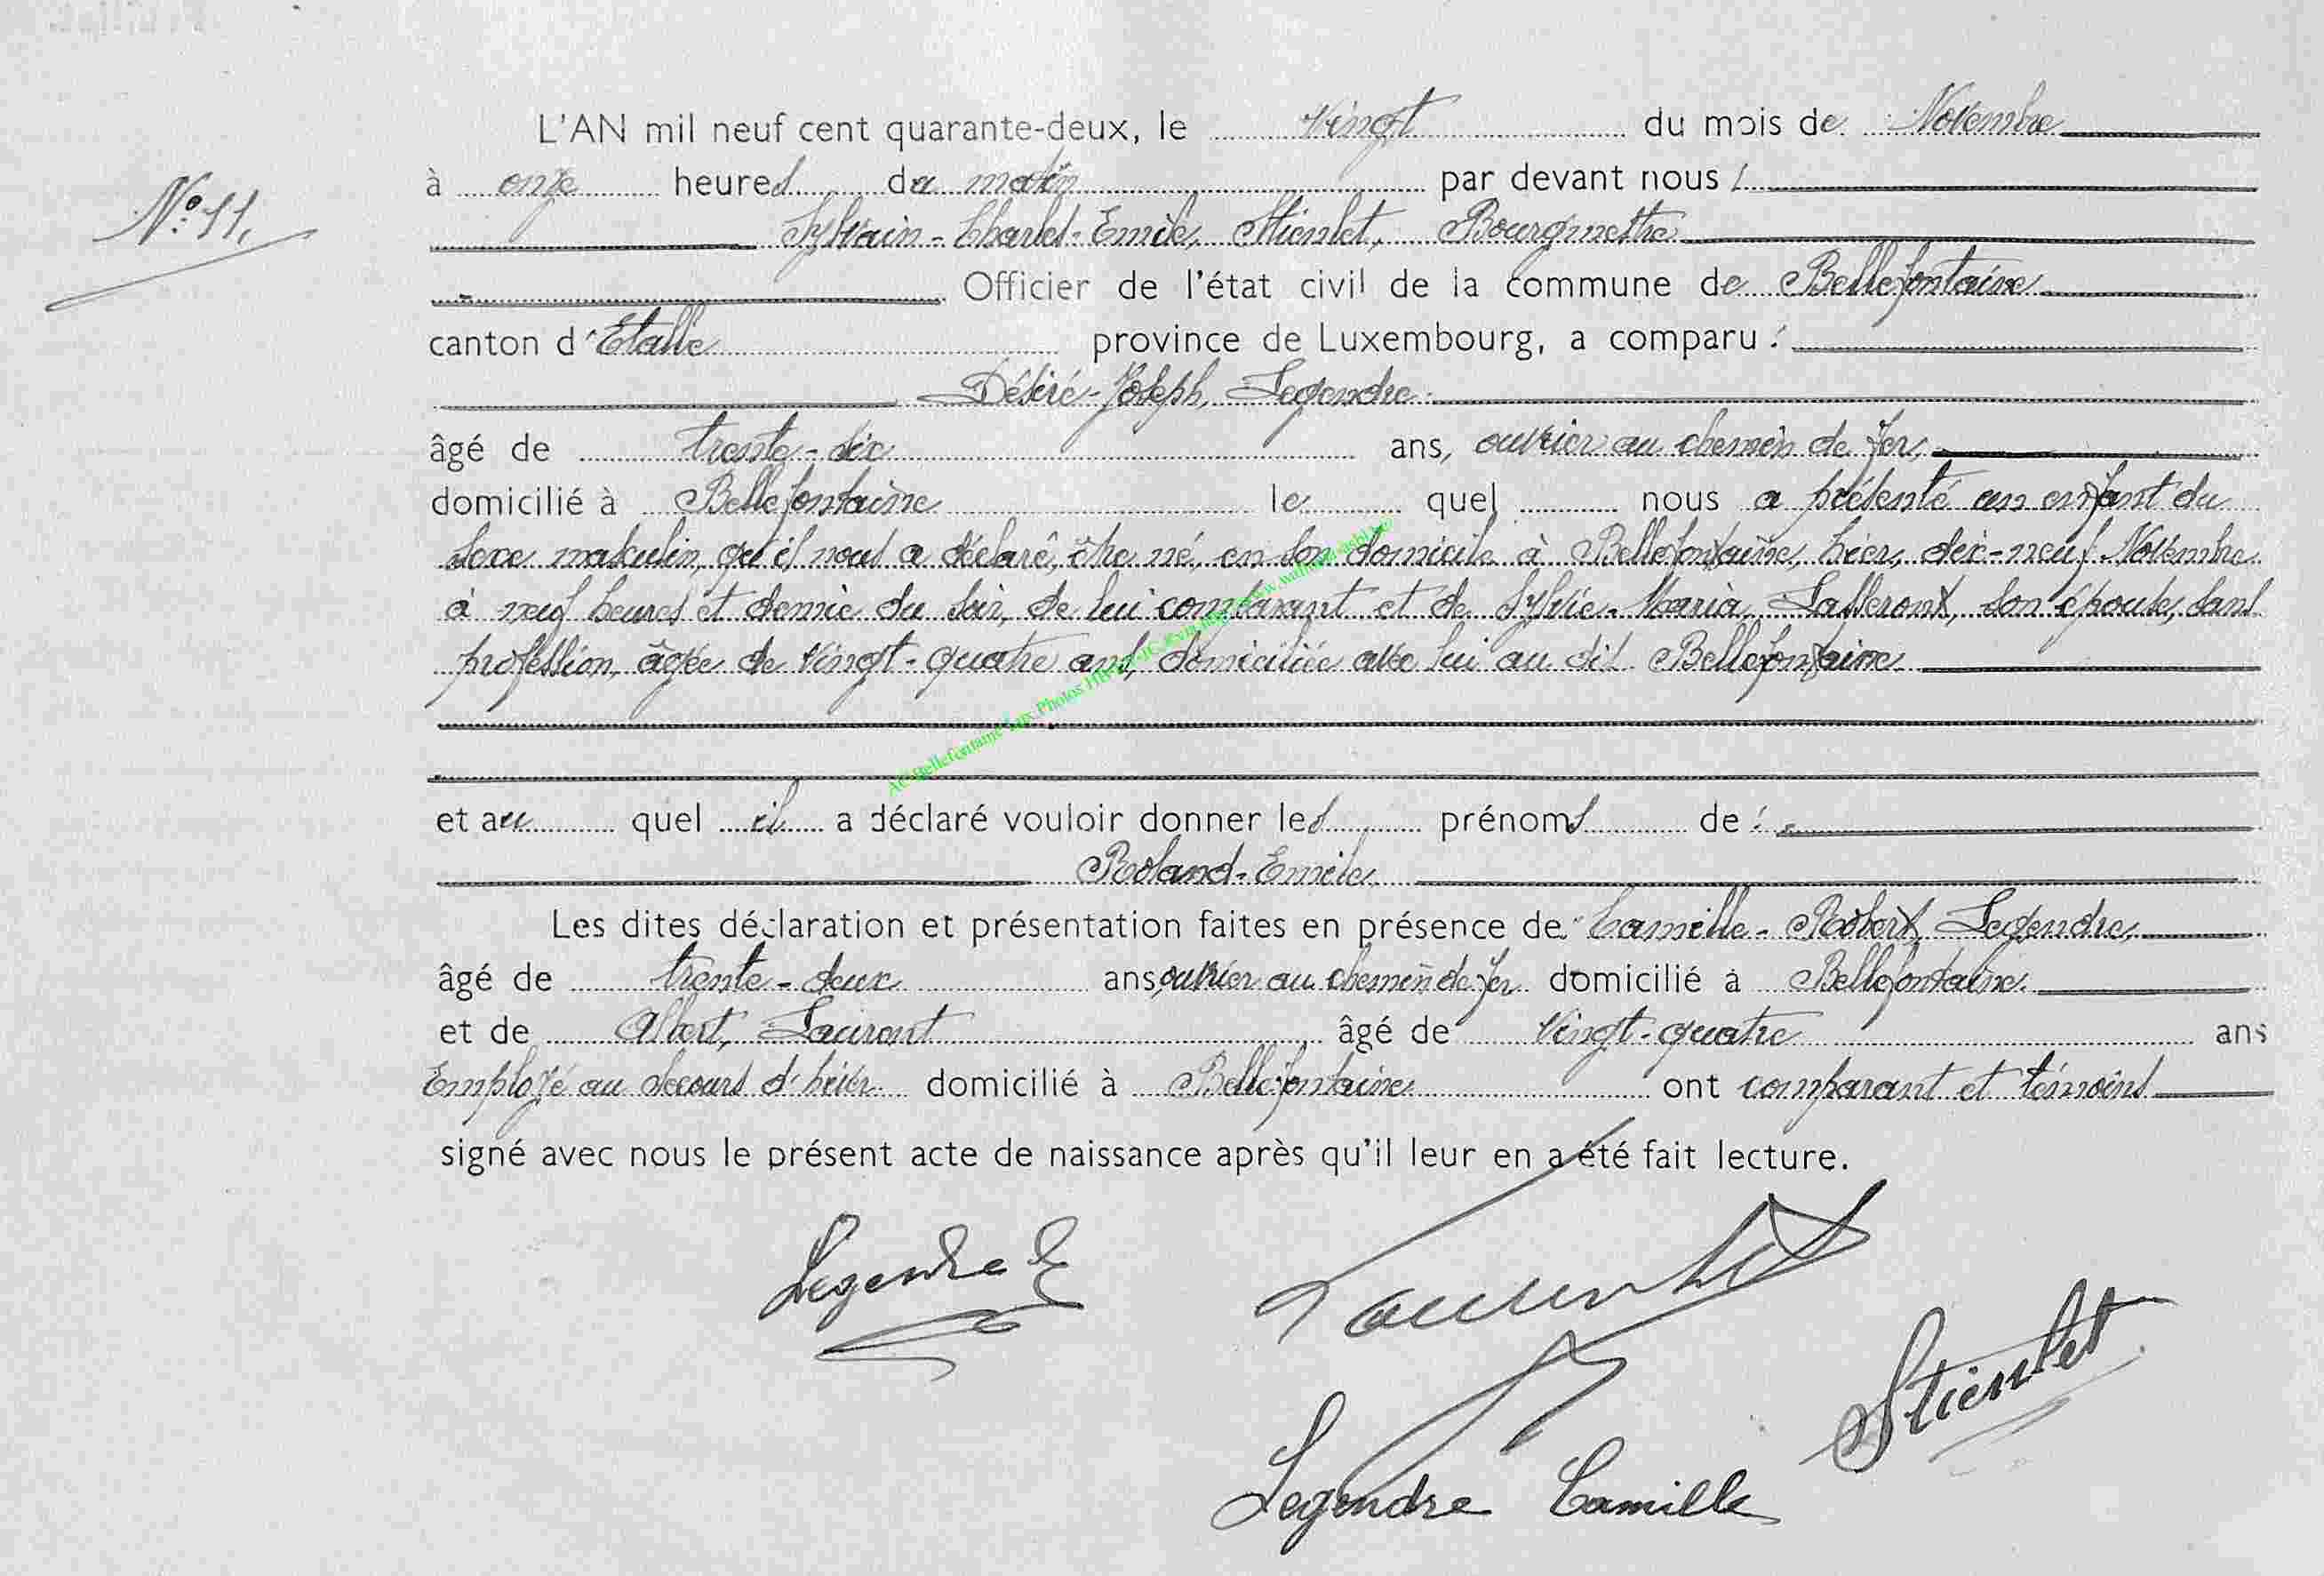 L'AN mil neuf cent quarante-deux, le vingt du mois de Novembre
à onze heures du matin par devant nous :
N° 11.
Sylvain-Charles-Emile, Stienlet, Bourgmestre
Officier de l'état civil de la commune de Bellefontaine
canton d'Etalle province de Luxembourg, a comparu :
Désiré-Joseph, Legendre
âgé de trente-six ans, ouvrier au chemin de fer,
domicilié à Bellefontaine lequel nous a présenté un enfant du
sexe masculin, qu'il nous a déclaré, être né, en son domicile à Bellefontaine, hier, dix-neuf Novembre
à neuf heures et demie du soir, de lui comparant et de Sylvie-Maria, Lasseront, son épouse, sans
profession, âgée de vingt-quatre ans, domiciliée avec lui au dit Bellefontaine
et auquel il a déclaré vouloir donner les prénoms de :
Roland-Emile,
Les dites déclaration et présentation faites en présence de Camille-Robert, Legendre,
âgé de trente-deux ans, ouvrier au chemin de fer domicilié à Bellefontaine
et de Albert, Laurent âgé de vingt-quatre ans
Employé au secours d'hiver domicilié à Bellefontaine ont comparant et témoins
signé avec nous le présent acte de naissance après qu'il leur en a été fait lecture.
Legendre D
Laurent
Stienlet
Legendre Camille